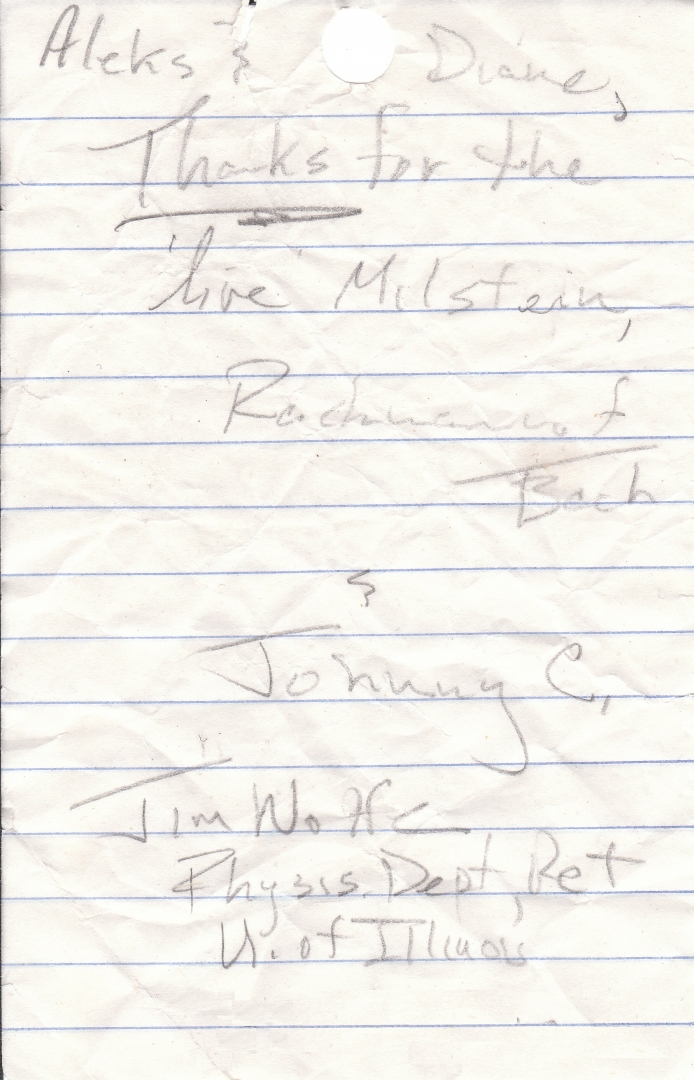 Aleks &    Diane,
Thanks for the
'live' Milstein,
Rachmaninof
Bach
&
Johnny C,
Jim Wolfe
Physis. Dept, Ret
U. of Illinois